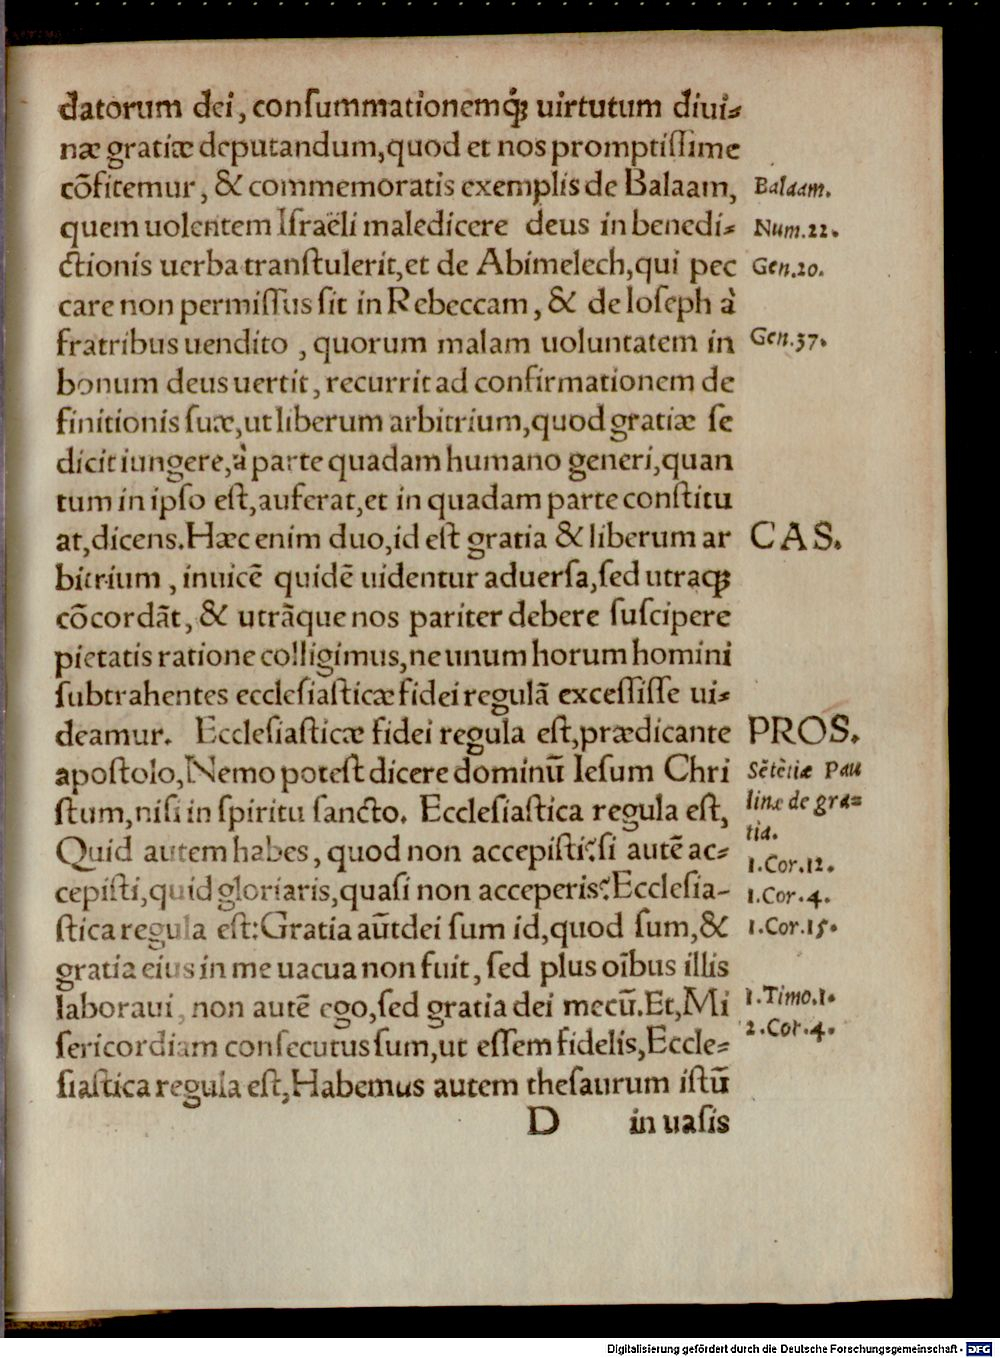 datorum dei, conſummationemq́ꝫ uirtutum diui⸗
næ gratiæ deputandum, quod et nos promptiſſime
cõfitemur, & commemoratis exemplis de Balaam,
Balaam.
quem uolentem Iſraëli maledicere deus in benedi⸗
Num.22.
ctionis uerba tranſtulerit, et de Abimelech, qui pec
Gen.20.
care non permiſſus ſit in Rebeccam, & de Ioſeph à
fratribus uendito, quorum malam uoluntatem in
Gen.37.
bonum deus uertit, recurrit ad confirmationem de
finitionis ſuæ, ut liberum arbitrium, quod gratiæ ſe
dicit iungere, à parte quadam humano generi, quan
tum in ipſo eſt, auferat, et in quadam parte conſtitu
at, dicens. Hæc enim duo, id eſt gratia & liberum ar
CAS.
bitrium, inuicẽ quidẽ uidentur aduerſa, ſed utraqꝫ
cõcordãt, & utrãque nos pariter debere ſuſcipere
pietatis ratione colligimus, ne unum horum homini
ſubtrahentes eccleſiaſticæ fidei regulã exceſſiſſe ui⸗
deamur. Eccleſiaſticæ fidei regula eſt, prædicante
PROS.
apoſtolo, Nemo poteſt dicere dominũ Ieſum Chri
Sẽtẽtiæ Pau
ſtum, niſi in ſpiritu ſancto. Eccleſiaſtica regula eſt,
linæ de gra⸗
tia.
Quid autem habes, quod non accepiſti? ſi autẽ ac⸗
1.Cor.12.
cepiſti, quid gloriaris, quaſi non acceperis? Eccleſia-
1.Cor.4.
ſtica regula eſt: Gratia aũt dei ſum id, quod ſum, &
1.Cor.15.
gratia eius in me uacua non fuit, ſed plus oĩbus illis
laboraui, non autẽ ego, ſed gratia dei mecũ. Et, Mi
1.Timo.1.
ſericordiam conſecutus ſum, ut eſſem fidelis, Eccle⸗
2.Cor.4.
ſiaſtica regula eſt, Habemus autem theſaurum iſtũ
D in uaſis
Digitalisierung gefördert durch die Deutsche Forschungsgemeinschaft - DFG